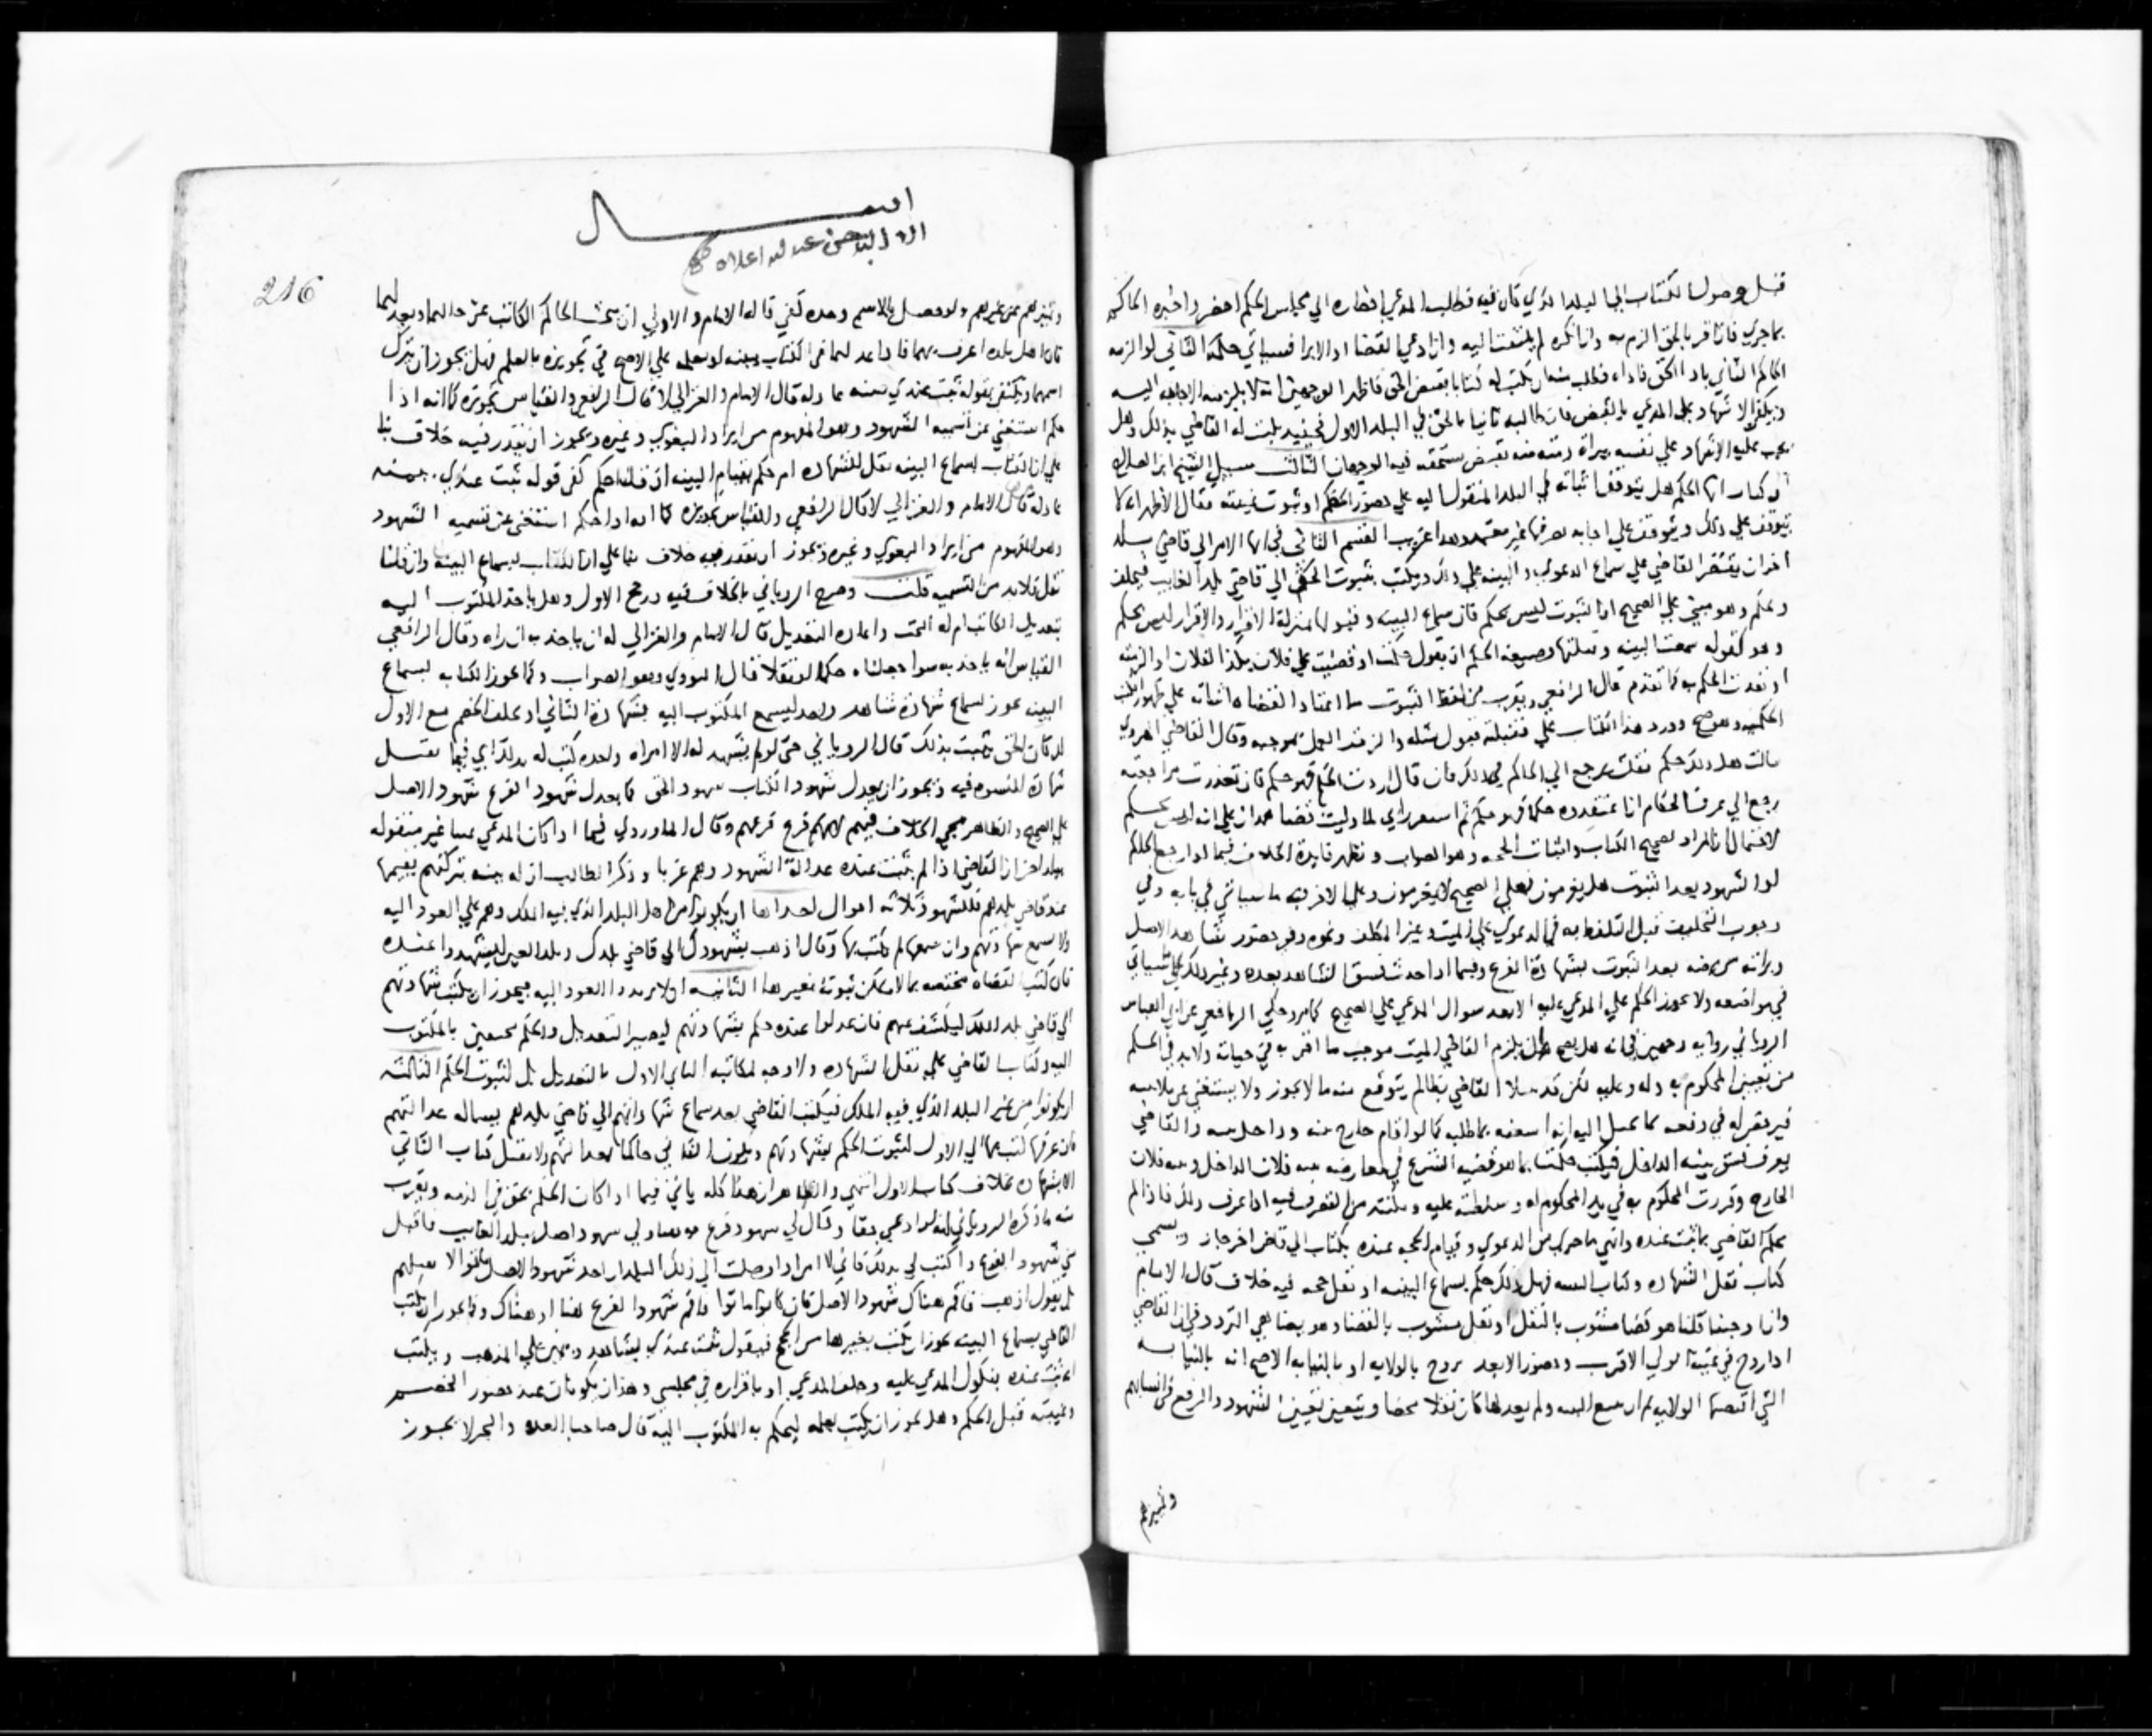 قبل وصول الكتاب الي البلد الذي كان فيه فطلب المدعي احضاره الي مجلس الحكم احضر واخبره الحاكم
بما جري فان اقر بالحق الزم به وان انكره لم يلتفت اليه وان ادعي القضا او الابرا فسياتي حكمه الثاني لو الزمه
الحاكم الثاني باد الحق فاداه فطلب منه ان يكتب له كتابا بقبض الحق فاظهر الوجهين انه لا يلزمه الاجابه اليه
ويكفي الاشهاد علي المدعي بالقبض فان طالبه ثانيا بالحق في البلد الاول فحينيذ يكتب له القاضي بذلك وهل
يجب عليه الاشهاد علي نفسه ببراة ذمته منه بقبض مستحقه فيه الوجهان الثالث سيل الشيخ ابن الصلاح
ان كتاب انها الحكم هل يتوقف اثباته في البلد المنقول اليه علي حضور الخصم او ثبوت غيبته فقال الاظهر انه لا
يتوقف علي ذلك وتوقف علي اجابه بعد فيها غير معتمد وهذا غريب القسم الثاني في انها الامر الي قاضي بلد
اخر ان يقتصر القاضي علي سماع الدعوي والبينه علي ذلك ويكتب بثبوت الحق الي قاضي بلد الغايب فيحلف
ويحكم وهو مبني علي الصحيح ان الثبوت ليس بحكم فان سماع البينه وقبولها بمنزلة الاقرار والاقرار ليس بحكم
وهو كقوله سمعت البينه وقبلتها وصيغة الحكم ان يقول حكمت او قضيت علي فلان بكذا لفلان او الزمته
او نفذت الحكم به كما تقدم قال الرافعي ويقرب من لفظ الثبوت ما اعتاد القضاه اثباته علي ظهور الكتب
الحكميه وهو صح ورود هذا الكتاب علي فقبلته قبول مثله والزمت العمل بموجبه وقال القاضي الهروي
سالت هل ذلك حكم فقلت يرجع الي الحاكم في ذلك فان قال اردت الحكم فهو حكم فان تعذرت مراجعته
رجع الي عرف الحكام ان اعتقدوه حكما فهو حكم ثم استقر رايي لما وليت قضا همدان علي انه ليس بحكم
لاحتمال ان المراد تصحيح الكتاب واثبات الحجه وهو الصواب وتظهر فايدة الخلاف فيما لو رجع الحاكم
لو الشهود بعد الثبوت هل يغرمون فعلي الصحيح لا يغرمون وعلي الاخر فيه ما سياتي في بابه وفي
وجوب التحليف قبل التلفظ به في الدعوي علي الميت وغير المكلف ونحوه وفي حضور شاهد الاصل
وبراته من مرضه بعد الثبوت بشهادة الفرع وفيما اذا حدث فسق الشاهد بعده وغير ذلك كما سياتي
في مواضعه ولا يجوز الحكم علي المدعي عليه الا بعد سوال المدعي علي الصحيح كما مر وحكي الرافعي عن ابي العباس
الروياني رواية وجهين في انه هل يصح
من تعيين المحكوم به وله وعليه لكن قد يبتلا القاضي بظالم يتوقع منه ما لا يجوز ولا يستغني عن ملاينته
يعرف فسق بينه الداخل فيكتب حكمت بما هو قضيه الشرع في معارضه بينه فلان الداخل وبينه فلان
الخارج وقررت المحكوم به في يد المحكوم له وسلطته عليه ومكنته من التصرف فيه اذا عرف ذلك فاذا لم
يحكم القاضي بما ثبت عنده وانهي ما جري من الدعوي وقيام الحجه عنده بكتاب الي قاض اخر جاز ويسمي
كتاب نقل الشهاده وكتاب التثبيت فهل ذلك حكم بسماع البينه او نقل حجه فيه خلاف قال الامام
واذا وجهنا قلنا هو قضا مشوب بالنقل او نقل مشوب بالقضا وهو يضاهي التردد في ان القاضي
اذا زوج في غيبة الولي الاقرب وحضور الابعد يزوج بالولايه او بالنيابه الاصح انه بالنيابه
التي اقتضتها الولايه ثم ان سمع البينه ولم يعدلها كان نقلا محضا ويتعين تعيين الشهود والرفع في انسابهم
وتميزهم
الله
216
وتميزهم عن غيرهم ولو حصل بالاسم وحده كفي قاله الامام والاولي ان يبحث الحاكم الكاتب عن حالهما ويعدلهما
فان اهل بلده اعرف بهما فاذا عدلهما في الكتاب
اسمهما ويكتفي بقوله ثبت عندي ببينه عادله قال الامام والغزالي لا قال الرافعي والقياس تجويزه كما انه اذا
حكم استغني عن تسميه الشهود وهو المفهوم من ايراد البغوي وغيره ويجوز ان يقدر فيه خلاف بنا
علي ان الكتاب بسماع البينه نقل للشهاده ام حكم بقيام البينه ان قلنا حكم كفي قوله ثبت عندي ببينه
عادله قال الامام والغزالي لا قال الرافعي والقياس تجويزه كما انه اذا حكم استغني عن تسميه الشهود
وهو المفهوم من ايراد البغوي وغيره ويجوز ان يقدر فيه خلاف بنا علي ان الكتاب بسماع البينه وان قلنا
نقل فلابد من التسميه قلت وصرح الروياني بالخلاف فيه ورجح الاول وهل ياخذ المكتوب اليه
بتعديل الكاتب ام له البحث واعادة التعديل قال الامام والغزالي له ان ياخذ به ان راه وقال الرافعي
القياس انه ياخذ به سوا جعلناه حكما او نقلا قال النووي وهو الصواب وكما يجوز الكتابه بسماع
البينه يجوز بسماع شهادة شاهد واحد ليسمع المكتوب اليه بشهادة الثاني او يحلف الخصم مع الاول
لو كان الحق يثبت بذلك قال الروياني حتي لو لم يشهد له الا امراه واحده كتب له بذلك اي فيما تقبل
شهادة النسوه فيه ويجوز ان يعدل شهود الكتاب شهود الحق كما يعدل شهود الفرع شهود الاصل
علي الصحيح والظاهر مجي الخلاف فيهم لانهم فرع فرعهم وقال الماوردي فيما اذا كان المدعي عينا غير منقوله
ببلد اخر ان القاضي اذا لم يثبت عنده عدالة الشهود وهم غربا وذكر الطالب ان له بينه بتزكيتهم يقيمها
عند قاضي بلدهم فللشهود ثلاثه احوال احداها ان يكونوا من اهل البلد الذي فيه الملك وهم علي العود اليه
ولا يسمع شهادتهم وان سمعها لم يكتب بها وقال اذهب بشهودك الي قاضي بلدك وبلد العين ليشهدوا عنده
فان كتب القضاه مختصه بما لا يمكن ثبوته بغيرها الثانيه ان لا يريدوا العود اليه فيجوز ان يكتب بشهادتهم
الي قاضي بلد الملك ليكشف عنهم فان عدلوا عنده حكم بشهادتهم ليصير التعديل والحكم مجتمعين بالمكتوب
اليه وكتاب القاضي علي نقل الشهاده ولا وجه لمكاتبه الثاني الاول بالتعديل بل لثبوت الحكم الثالثه
ان يكونوا من غير البلد الذي فيه الملك فيكتب القاضي بعد سماع شهادتهم الي قاضي بلدهم يساله عدالتهم
فان عرفها كتب بها الي الاول لثبوت الحكم بشهادتهم ويكون الثاني حاكما بعدالتهم ولا يقبل كتاب الثاني
الا بشهاده بخلاف كتاب الاول انتهي والظاهر ان هذا كله ياتي فيما اذا كان الحكم بحق في الذمه ويقرب
منه ما ذكره الروياني انه لو ادعي حقا وقال لي شهود فرع هاهنا ولي شهود اصل ببلد الغايب فاقبل
مني شهود الفرع واكتب لي بذلك فاني لا امن اذا وصلت الي ذلك البلد ان اجد شهود الاصل ماتوا لا يقبلهم
بل يقول اذهب فاقم هناك شهود الاصل فان كانوا ماتوا فاقم شهود الفرع هنا او هناك وكما يجوز ان يكتب
القاضي بسماع البينه يجوز ان يكتب بغيرها من الحجج فيقول ثبت عندي بشاهد ويمين علي المذهب ويكتب
انه ثبت عنده بنكول المدعي عليه وحلف المدعي او باقراره في مجلسي وهذان يكونان عند حضور الخصم
وغيبته قبل الحكم وهل يجوز ان يكتب بعلمه ليحكم به المكتوب اليه قال صاحبا العده والبحر لا يجوز